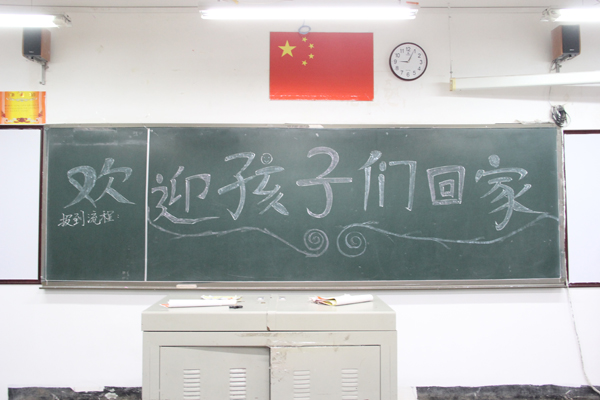 欢迎孩子们回家
报到流程: